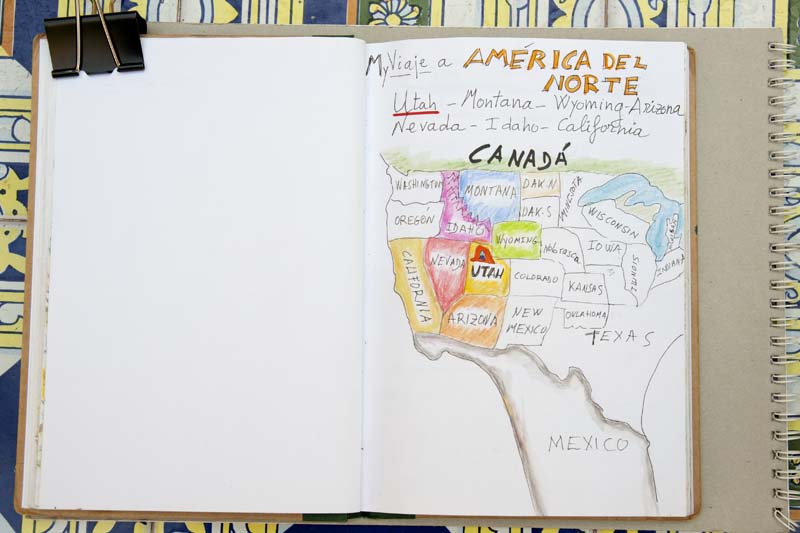 My Viaje a AMÉRICA DEL
NORTE
Utah - Montana - Wyoming - Arizona
Nevada - Idaho - California
CANADÁ
WASHINGTON
MONTANA
DAK-N
MINESOTA
OREGÓN
IDAHO
DAK-S
WISCONSIN
WYOMING
Nebrasca
IOWA
ILINOIS
INDIANA
CALIFORNIA
NEVADA
UTAH
COLORADO
KANSAS
ARIZONA
NEW
MEXICO
OKLAHOMA
TEXAS
MEXICO